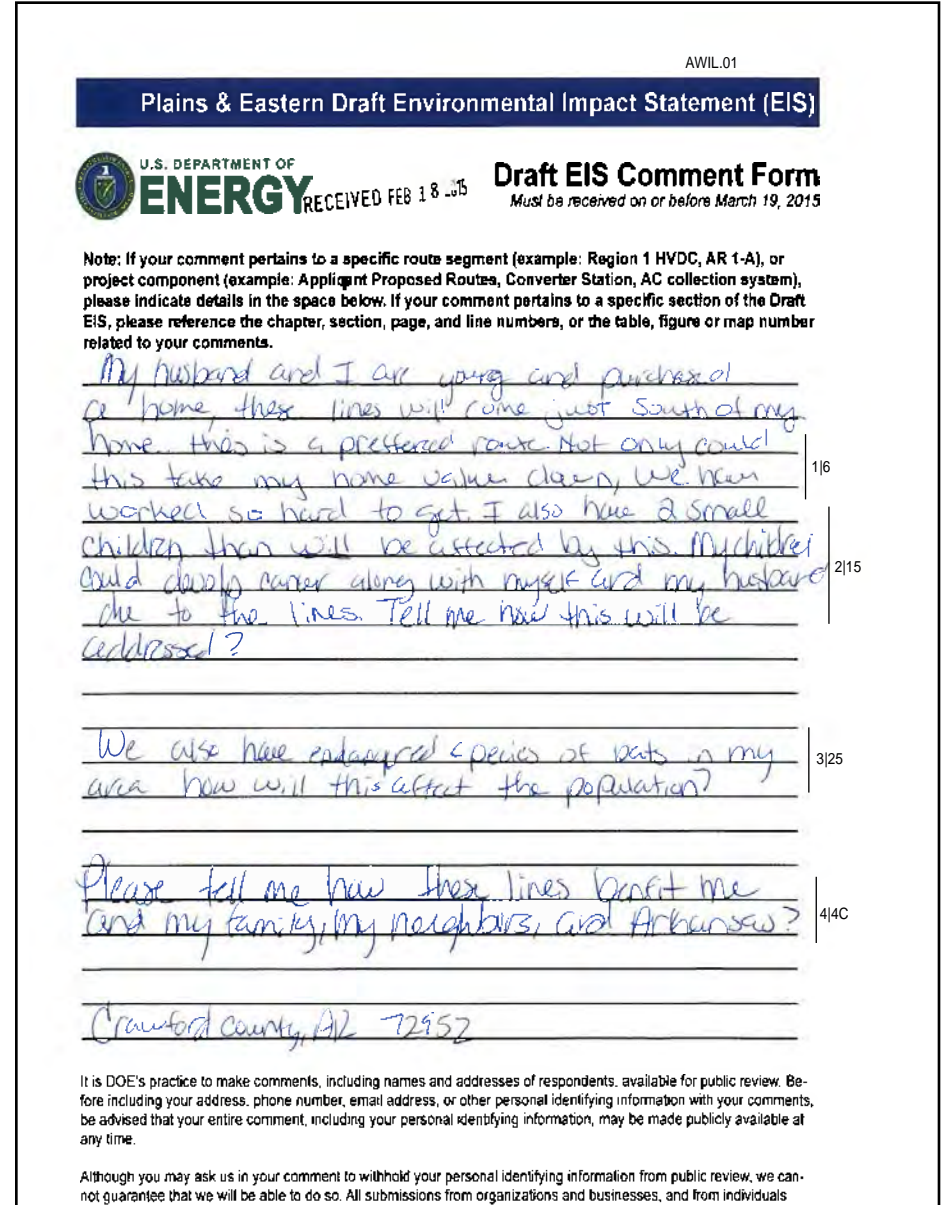 AWIL.01
Plains & Eastern Draft Environmental Impact Statement (EIS)
U.S. DEPARTMENT OF
ENERGY
RECEIVED FEB 18 2015
Draft EIS Comment Form
Must be received on or before March 19, 2015
Note: If your comment pertains to a specific route segment (example: Region 1 HVDC, AR 1-A), or
project component (example: Applicant Proposed Routes, Converter Station, AC collection system),
please indicate details in the space below. If your comment pertains to a specific section of the Draft
EIS, please reference the chapter, section, page, and line numbers, or the table, figure or map number
related to your comments.
My husband and I are young and purchased
a home, these lines will come just South of my
home. this is a preffered route. Not only could
this take my home value down, We have
1|6
worked so hard to get. I also have 2 small
children than will be affected by this. My children
could develp cancer along with myself and my husband
2|15
due to the lines. Tell me how this will be
addressed?
We also have endangered species of bats in my
3|25
area how will this affect the population?
Please tell me how these lines benfit me
and my family, my neighbors, and Arkansas?
4|4C
Crawford County, AR 72952
It is DOE's practice to make comments, including names and addresses of respondents, available for public review. Be-
fore including your address, phone number, email address, or other personal identifying information with your comments,
be advised that your entire comment, including your personal identifying information, may be made publicly available at
any time.
Although you may ask us in your comment to withhold your personal identifying information from public review, we can-
not guarantee that we will be able to do so. All submissions from organizations and businesses, and from individuals